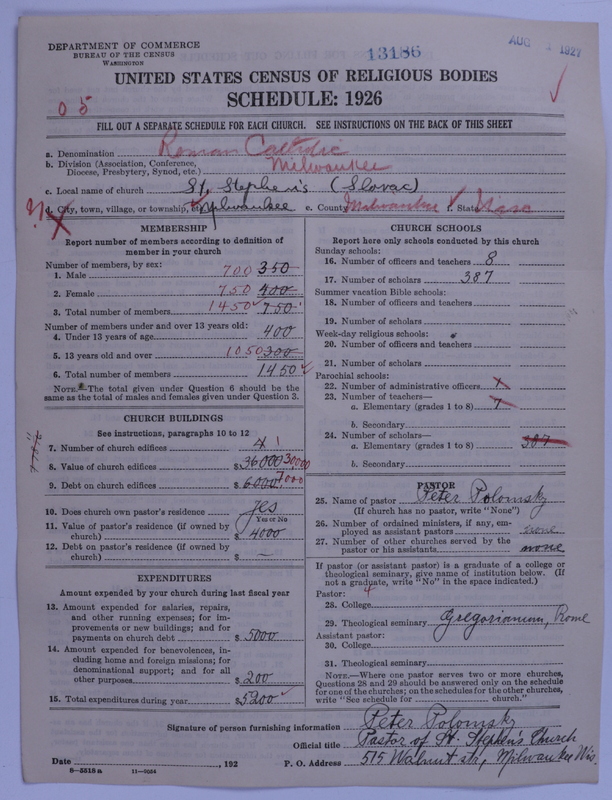 DEPARTMENT OF COMMERCE
BUREAU OF THE CENSUS
WASHINGTON
13186
AUG 4 1927
UNITED STATES CENSUS OF RELIGIOUS BODIES
SCHEDULE: 1926
05
FILL OUT A SEPARATE SCHEDULE FOR EACH CHURCH. SEE INSTRUCTIONS ON THE BACK OF THIS SHEET
a. Denomination Roman Catholic
b. Division (Association, Conference, Diocese, Presbytery, Synod, etc.) Milwaukee
c. Local name of church St. Stephen's (Slovac)
d. City, town, village, or township, etc. Milwaukee e. County Milwaukee f. State
MEMBERSHIP
Report number of members according to definition of
member in your church
Number of members, by sex:
1. Male 700 350
2. Female 750 400
3. Total number of members 1450 750
Number of members under and over 13 years old:
4. Under 13 years of age 400
5. 13 years old and over 1050 300
6. Total number of members 1450
NOTE.—The total given under Question 6 should be
same as the total of males and females given under Question 3.
CHURCH BUILDINGS
See instructions, paragraphs 10 to 12
7. Number of church edifices 1
8. Value of church edifices $36000 30,000
9. Debt on church edifices $6000 7,000
10. Does church own pastor's residence yes
Yes or No
11. Value of pastor's residence (if owned by
church) $4000
12. Debt on pastor's residence (if owned by
church) $ —
EXPENDITURES
Amount expended by your church during last fiscal year
13. Amount expended for salaries, repairs,
and other running expenses; for im-
provements or new buildings; and for
payments on church debt $5000
14. Amount expended for benevolences, in-
cluding home and foreign missions; for
denominational support; and for all
other purposes $200
15. Total expenditures during year $5200
CHURCH SCHOOLS
Report here only schools conducted by this church
Sunday schools:
16. Number of officers and teachers 8
17. Number of scholars 387
Summer vacation Bible schools:
18. Number of officers and teachers
19. Number of scholars
Week-day religious schools:
20. Number of officers and teachers
21. Number of scholars
Parochial schools:
22. Number of administrative officers 1
23. Number of teachers—
a. Elementary (grades 1 to 8) 7
b. Secondary
24. Number of scholars—
a. Elementary (grades 1 to 8) 387
b. Secondary
PASTOR
25. Name of pastor Peter Polomsky
(If church has no pastor, write "None")
26. Number of ordained ministers, if any, em-
ployed as assistant pastors none
27. Number of other churches served by the
pastor or his assistants none
If pastor (or assistant pastor) is a graduate of a college or
theological seminary, give name of institution below. (If
not a graduate, write "No" in the space indicated.)
Pastor:
28. College
29. Theological seminary Gregorianum, Rome
Assistant pastor:
30. College
31. Theological seminary
NOTE.—Where one pastor serves two or more churches,
Questions 28 and 29 should be answered only on the schedule
for one of the churches; on the schedules for the other churches,
write "See schedule for church."
Signature of person furnishing information Peter Polomsky
Official title Pastor of St. Stephen's Church
Date , 192 P. O. Address 515 Walnut str, Milwaukee Wis.
8—5518a 11—9054